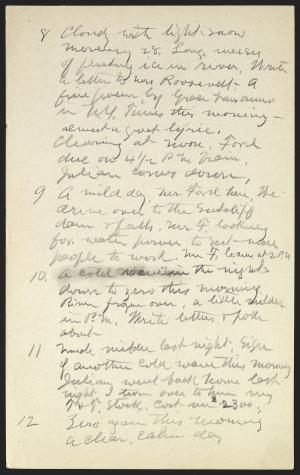 8 Cloudy with light snow
morning 28. Large masses
of floating ice in river. Write
a letter to Mrs Roosevelt. A
fine poem by Grace
in N.Y. Times this morning -
almost a great lyric.
Clearing at noon. Ford
due on 4½ P.M. train.
Julian comes down.
9 A mild day. Mr Ford here. We
drive over to the Sutcliff
dam & falls. Mr F. looking
for water power to set more
people to work. Mr F. leaves at 2 P.M.
10 A cold in the night
down to zero this morning.
River frozen over. a little milder
in P.M. Write letters & poke
about
11 Much milder last night. Sign
of another cold wave this morning
Julian went back home last
night. I turn over to him my
Stock. Cost me $2300.
12 Zero again this morning
a clear, calm day